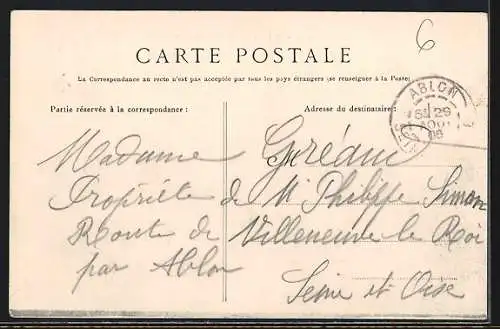 6
CARTE POSTALE
La Correspondance au recto n'est pas acceptée par tous les pays étrangers (se renseigner à la Poste)
Partie réservée à la correspondance :
Adresse du destinataire :
ABLON
29
AOU
Madame
Propriété de Mr Philippe Simon
Route de Villeneuve le Roi
par Ablon
Seine et Oise